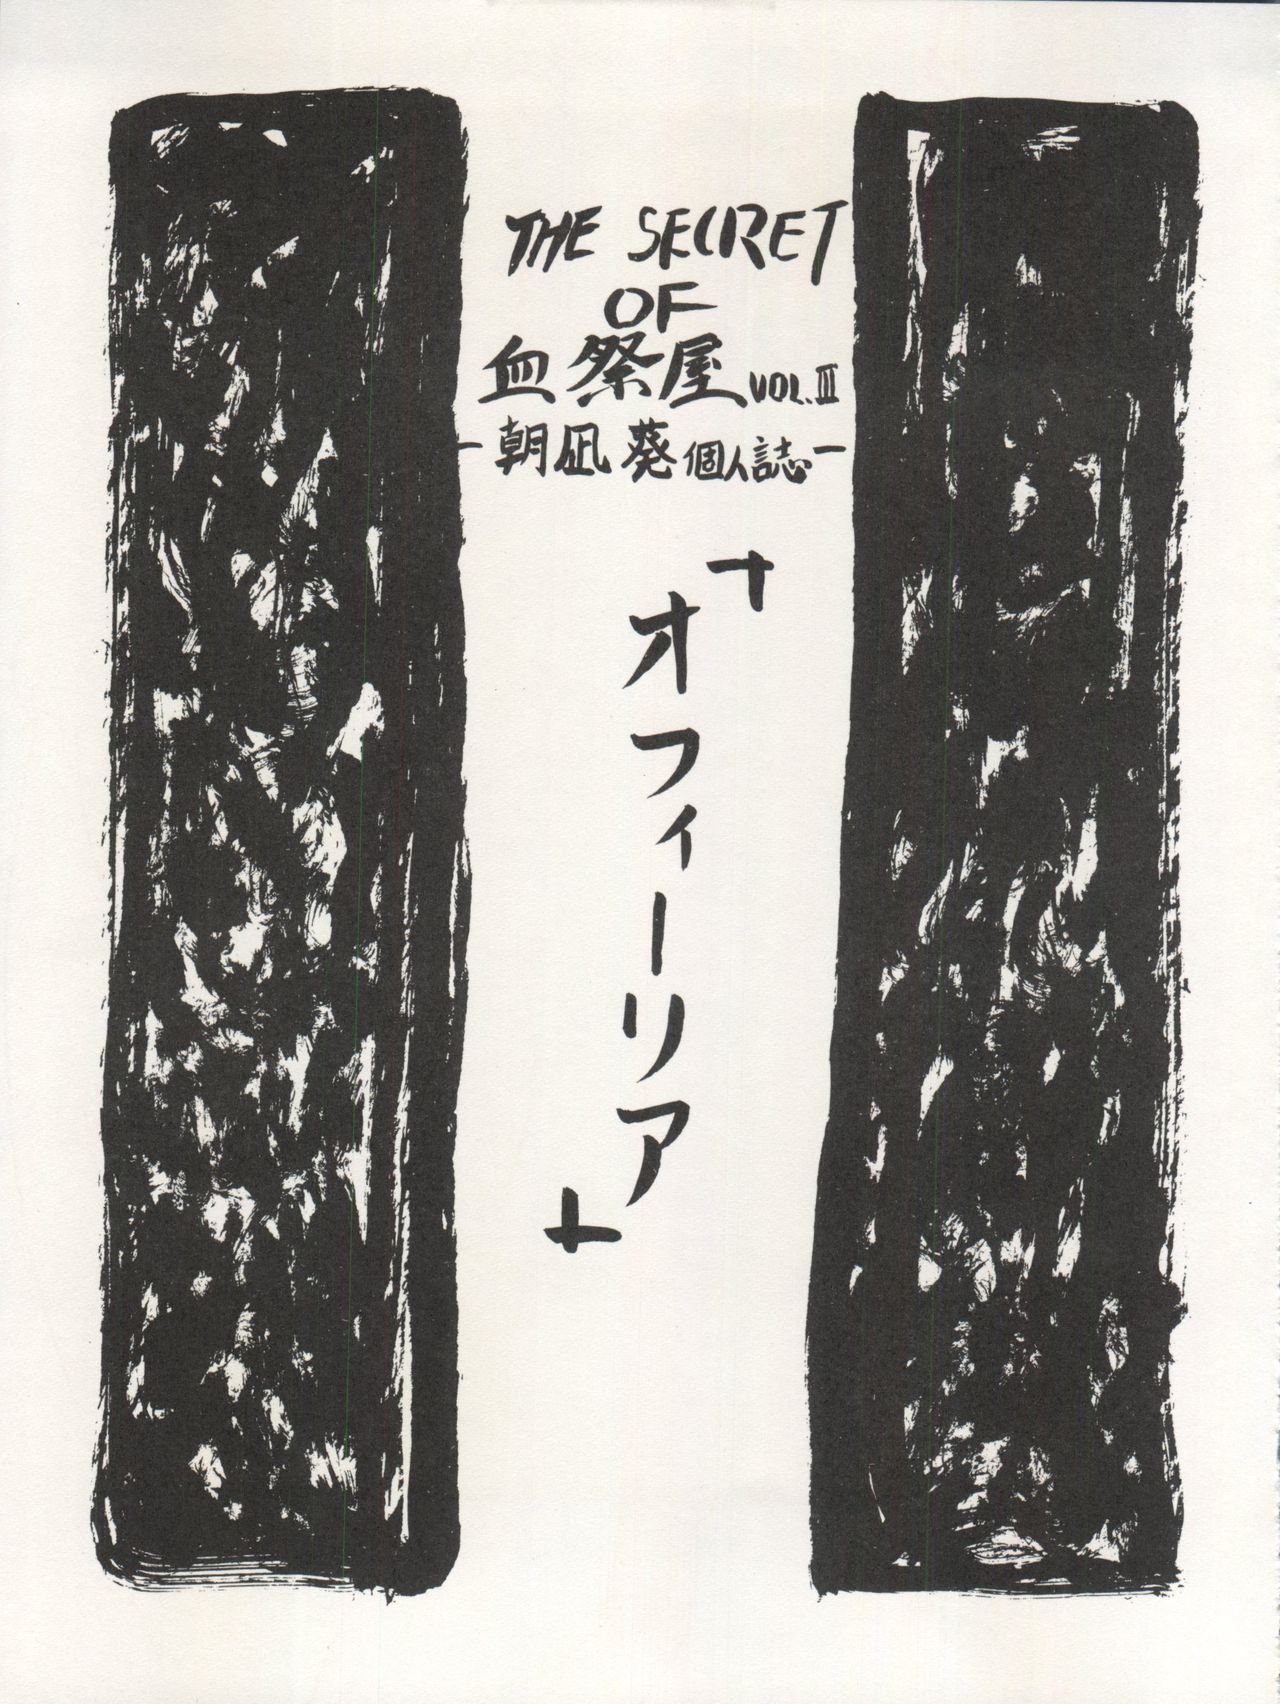 THE SECRET
OF
血祭屋 VOL.III
-朝凪 葵 個人誌-
オフィーリア